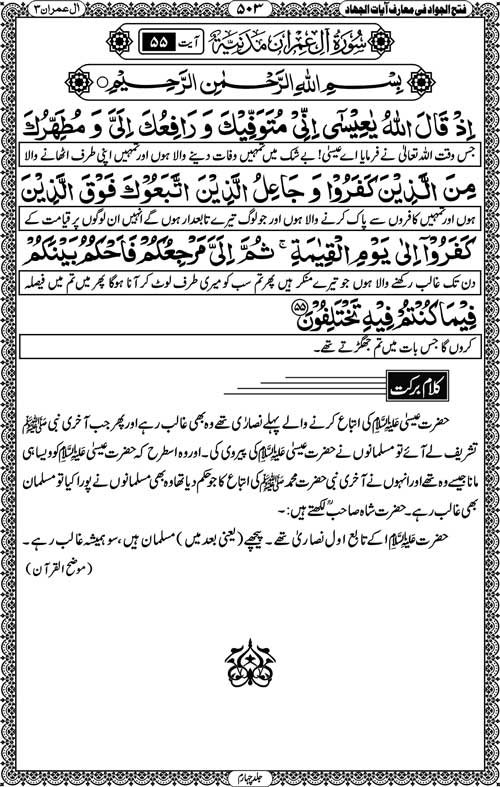 فتح الجواد فی معارف آیات الجهاد ۵۰۳ اٰل عمران ۳
سُوْرَةُ اٰلِ عِمْرٰانَ مَدَنِيَّةٌ آیت ۵۵
بِسْمِ اللهِ الرَّحْمٰنِ الرَّحِيْمِ
اِذْ قَالَ اللهُ يٰعِيْسٰى اِنِّىْ مُتَوَفِّيْكَ وَ رَافِعُكَ اِلَىَّ وَ مُطَهِّرُكَ
جس وقت اللہ تعالیٰ نے فرمایا اے عیسیٰ! بے شک میں تمہیں وفات دینے والا ہوں اور تمہیں اپنی طرف اٹھانے والا
مِنَ الَّذِيْنَ كَفَرُوْا وَ جَاعِلُ الَّذِيْنَ اتَّبَعُوْكَ فَوْقَ الَّذِيْنَ
ہوں اور تمہیں کافروں سے پاک کرنے والا ہوں اور جو لوگ تیرے تابعدار ہوں گے انہیں ان لوگوں پر قیامت کے
كَفَرُوْۤا اِلٰى يَوْمِ الْقِيٰمَةِ ۚ ثُمَّ اِلَىَّ مَرْجِعُكُمْ فَاَحْكُمُ بَيْنَكُمْ
دن تک غالب رکھنے والا ہوں جو تیرے منکر ہیں پھر تم سب کو میری طرف لوٹ کر آنا ہوگا پھر میں تم میں فیصلہ
فِيْمَا كُنْتُمْ فِيْهِ تَخْتَلِفُوْنَ ۵۵
کروں گا جس بات میں تم جھگڑتے تھے۔
کلام برکت
حضرت عیسیٰ علیہ السلام کی اتباع کرنے والے پہلے نصاریٰ تھے وہ بھی غالب رہے اور پھر جب آخری نبی ﷺ
تشریف لے آئے تو مسلمانوں نے حضرت عیسیٰ علیہ السلام کی پیروی کی۔ اور وہ اسطرح کہ حضرت عیسیٰ علیہ السلام کو ویسا ہی
مانا جیسے وہ تھے اور انہوں نے آخری نبی حضرت محمد ﷺ کی اتباع کا جو حکم دیا تھا وہ بھی مسلمانوں نے پورا کیا تو مسلمان
بھی غالب رہے۔ حضرت شاہ صاحبؒ لکھتے ہیں:۔
حضرت علیہ السلام کے تابع اول نصاریٰ تھے۔ پیچھے (یعنی بعد میں) مسلمان ہیں، سو ہمیشہ غالب رہے۔
(موضح القرآن)
جلد چہارم